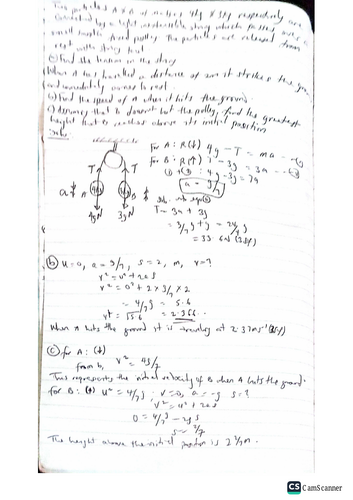 Two particles A & B of masses 4kg & 3kg respectively are
connected by a light inextensible string which passes over a
small smooth fixed pulley. The particles are released from
rest with string taut
a) Find the tension in the string
When A has travelled a distance of 2m it strikes the ground
and immediately comes to rest.
b) Find the speed of A when it hits the ground
c) Assuming that B doesn't hit the pulley, find the greatest
height that B reaches above its initial position
For A: R(↓) 4g - T = ma
For B: R(↑) T - 3g = 3a
① + ② : 4g - 3g = 7a
a = g/7
T T
a A B
4gN 3gN
T = 3a + 3g
= 3/7 g + g = 24/7 g
= 33.6N (3sf)
(b) u=0, a = g/7, s = 2, m, v=?
v² = u² + 2as
v² = 0² + 2 × g/7 × 2
= 4/7 g = 5.6
v = √5.6 = 2.366
When A hits the ground it is travelling at 2.37ms⁻¹ (3sf)
(c) For A: (↓)
from b, v² = 4g/7
This represents the initial velocity of B when A hits the ground.
For B: (↑) u² = 4/7 g, v=0, a = -g s=?
v² = u² + 2as
0 = 4/7 g - 2gs
s = 2/7
The height above the initial position is 2 2/7 m.
CS CamScanner